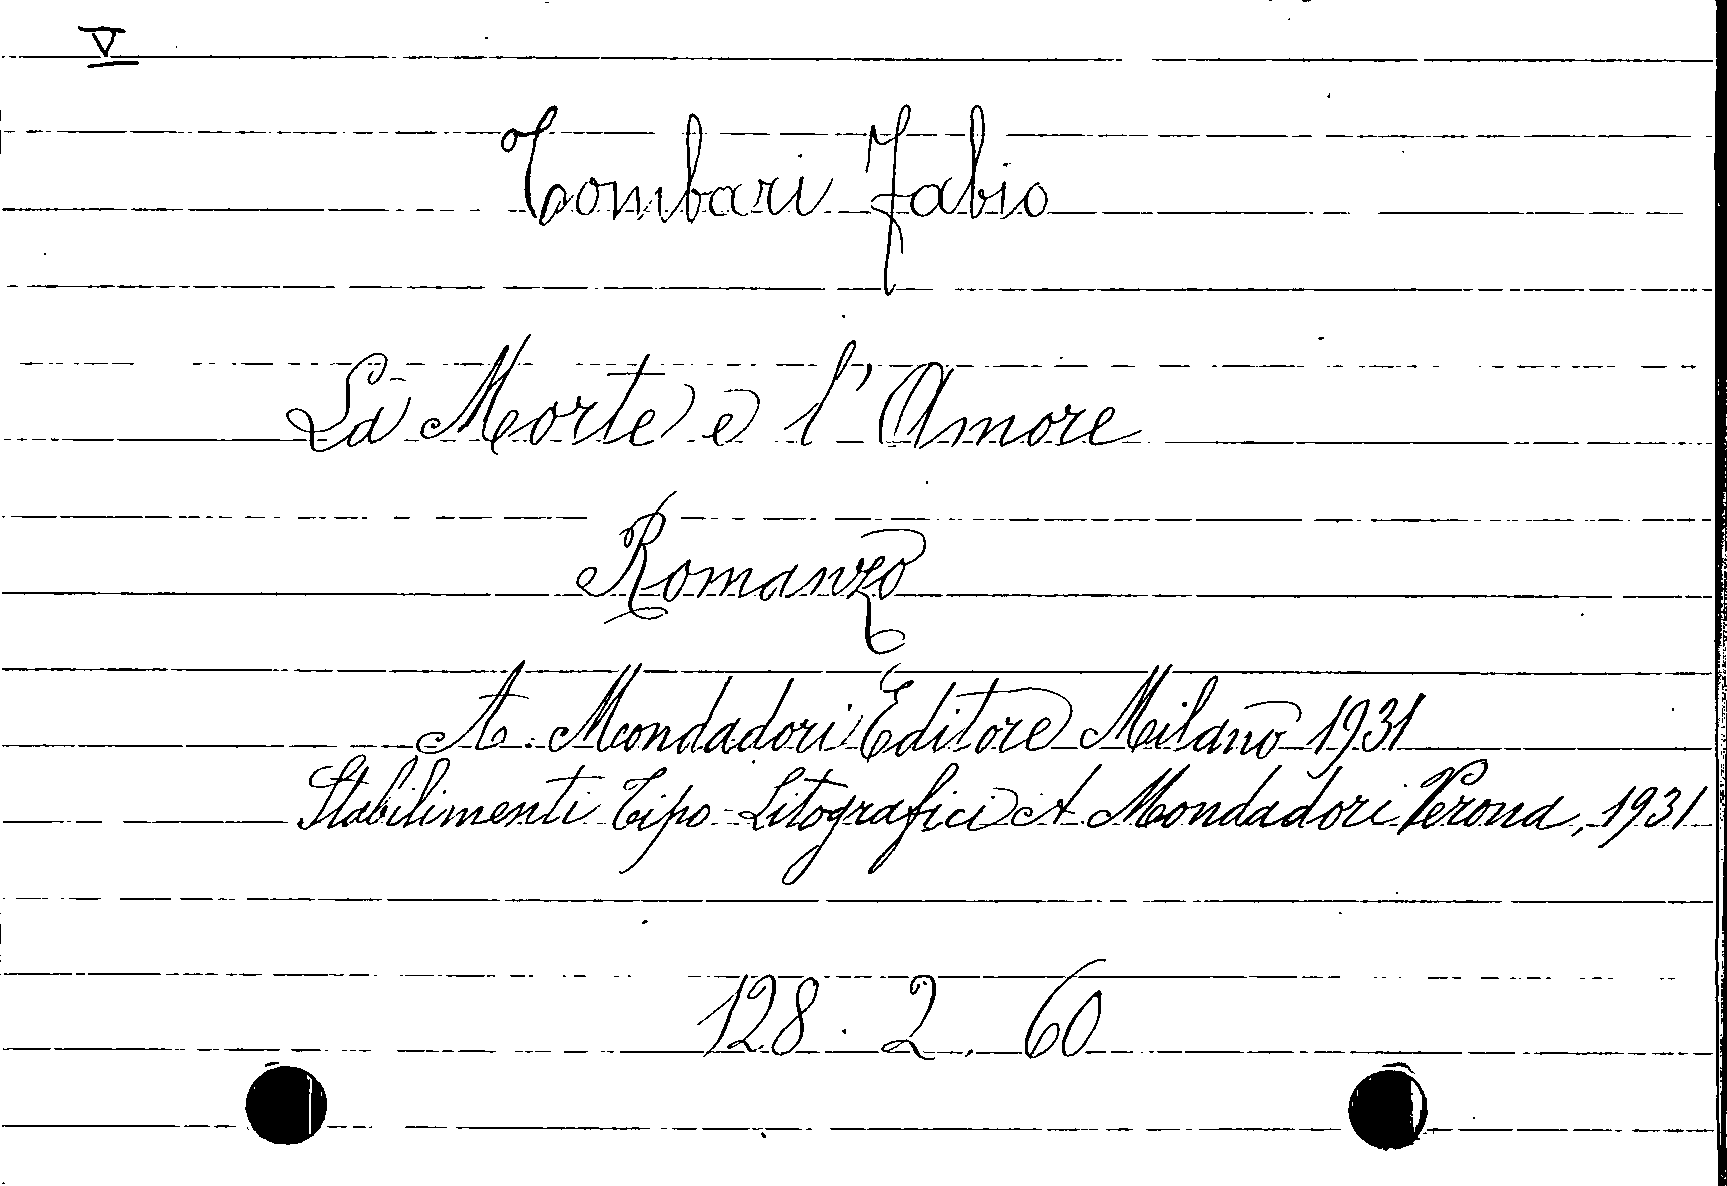 V
Tombari Fabio
La Morte e l'Amore
Romanzo
A. Mondadori Editore Milano 1931
Stabilimenti Tipo-Litografici A. Mondadori Verona, 1931
128. 2. 60